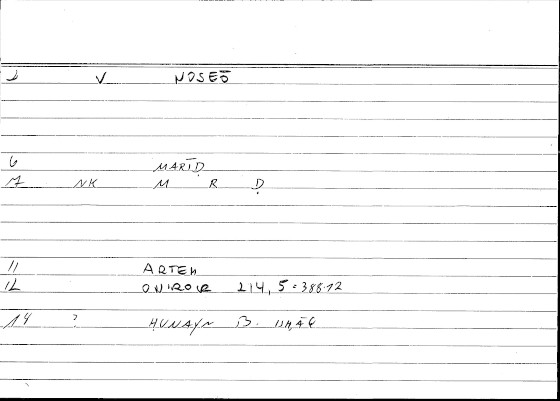 2 V NOSEŌ
6 MARĪḌ
7 NK M R Ḍ
11 ARTEM
12 ONIROCR 214, 5 = 388.12
14 ? ḤUNAYN B. ISḤĀQ